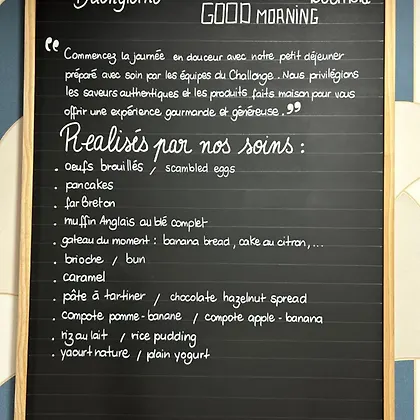 Buongiorno
GOOD MORNING
“ Commencez la journée en douceur avec notre petit déjeuner
préparé avec soin par les équipes du Challonge. Nous privilégions
les saveurs authentiques et les produits faits maison pour vous
offrir une expérience gourmande et généreuse. ”
Realisés par nos soins :
. oeufs brouillés / scambled eggs
. pancakes
. far Breton
. muffin Anglais au blé complet
. gateau du moment : banana bread, cake au citron, ...
. brioche / bun
. caramel
. pâte à tartiner / chocolate hazelnut spread
. compote pomme - banane / compote apple - banana
. riz au lait / rice pudding
. yaourt nature / plain yogurt